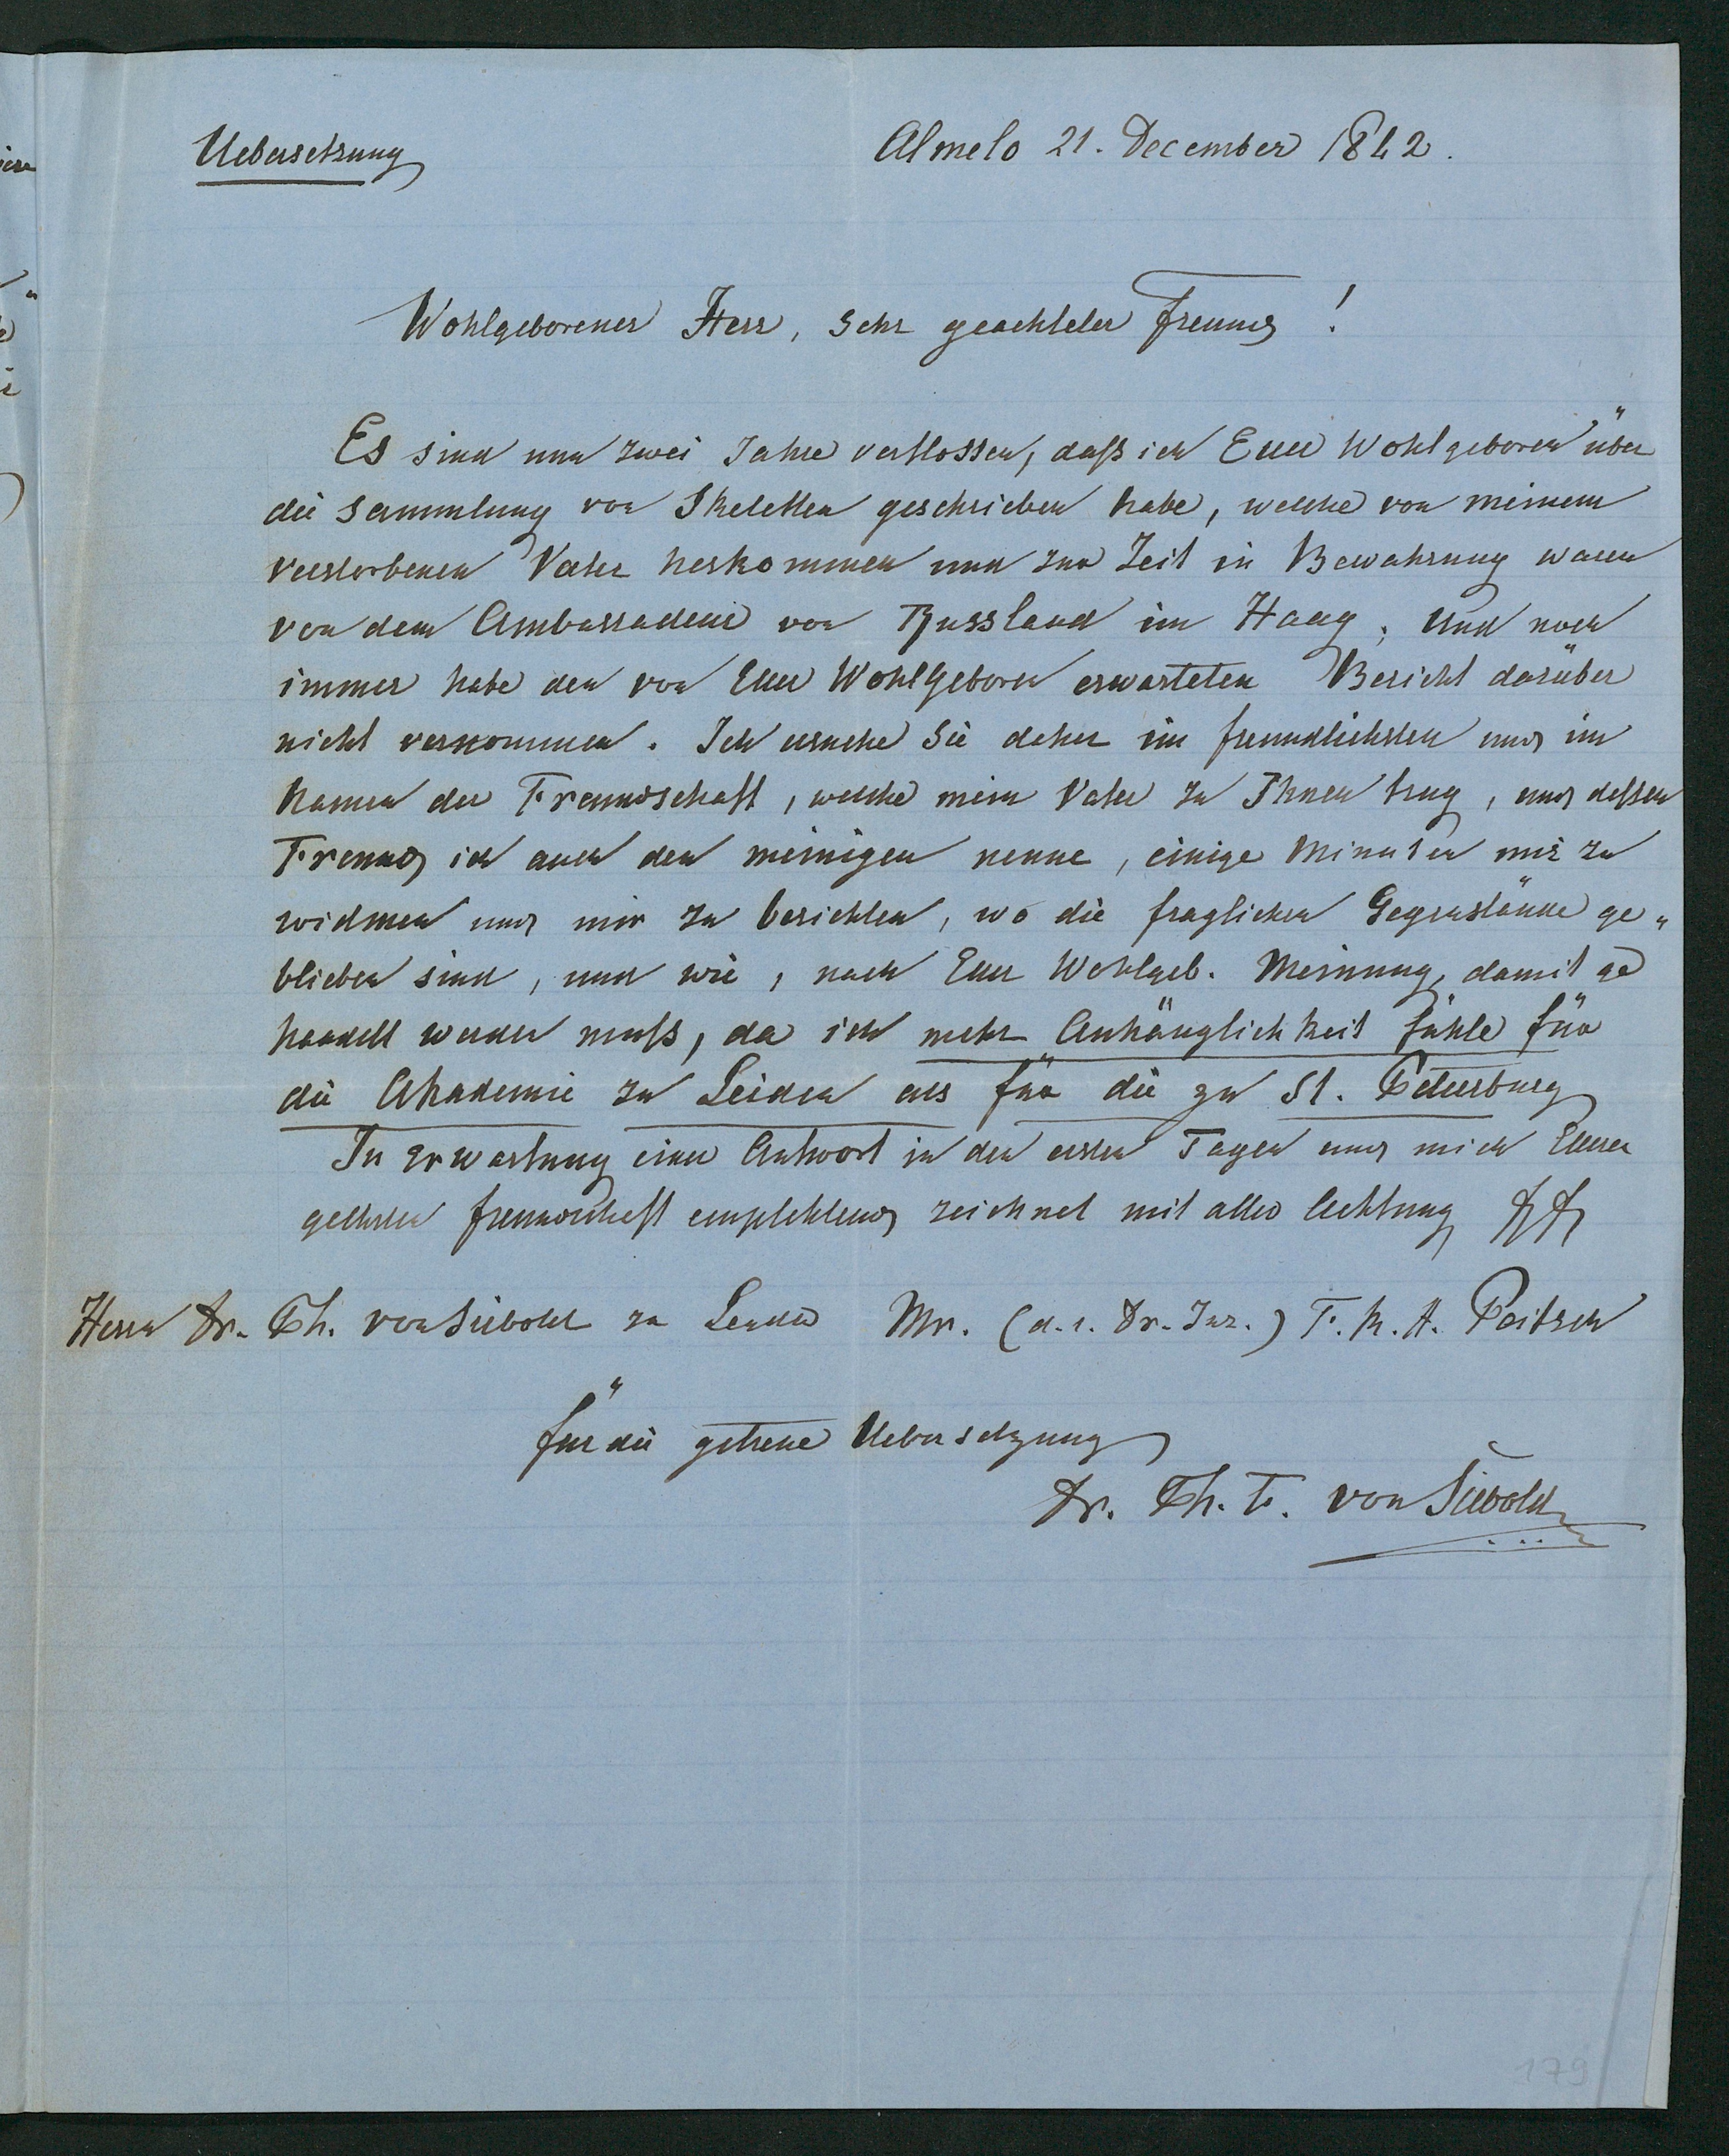 Uebersetzung
Almelo 21. December 1842.
Wohlgeborener Herr, Sehr geachteter Freund!
Es sind nun zwei Jahre verflossen, daß ich Euer Wohlgeboren über
die Sammlung von Skeletten geschrieben habe, welche von meinem
verstorbenen Vater herkommen und zur Zeit in Bewahrung waren
von dem Ambassadeur von Russland im Haag, und noch
immer habe den von Euer WohlGeboren erwarteten Bericht darüber
nicht verkommen. Ich ersuche Sie daher im freundlichsten und im
Namen der Freundschaft, welche mein Vater zu Ihnen trug, und dessen
Freund ich auch den meinigen nenne, einige Minuten mir zu
widmen und mir zu berichten, wo die fraglichen Gegenstände ge„
blieben sind, und wie, nach Euer Wohlgeb. Meinung, damit ge
handelt werden muß, da ich mehr Anhänglichkeit fühle für
die Akademie zu Leiden als für die zu St. Petersburg
In Erwartung einer Antwort in den ersten Tagen und mich Eurer
geehrten Freundschaft empfehlend zeichnet mit aller Achtung
Herrn Dr. Ph. von Siebold zu Leiden
Mr. (d. i. Dr. Jur.) F. A. Peitsch
für die getreue Uebersetzung
Dr. Ph. F. von Siebold
179